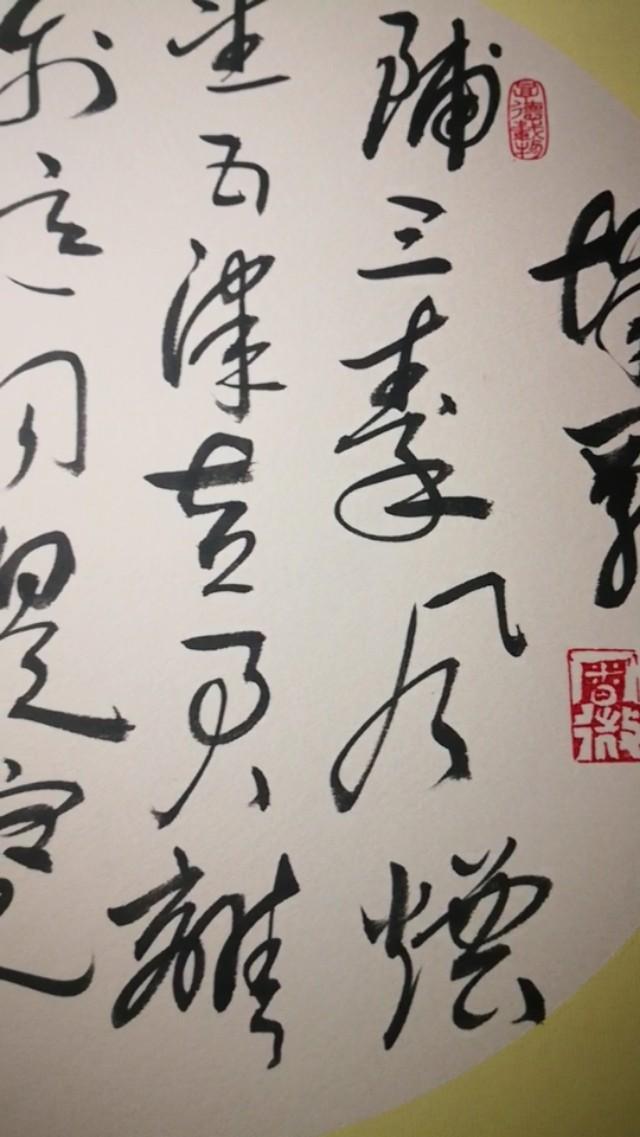 城闕
輔三秦風煙
望五津與君離
別意同是宦